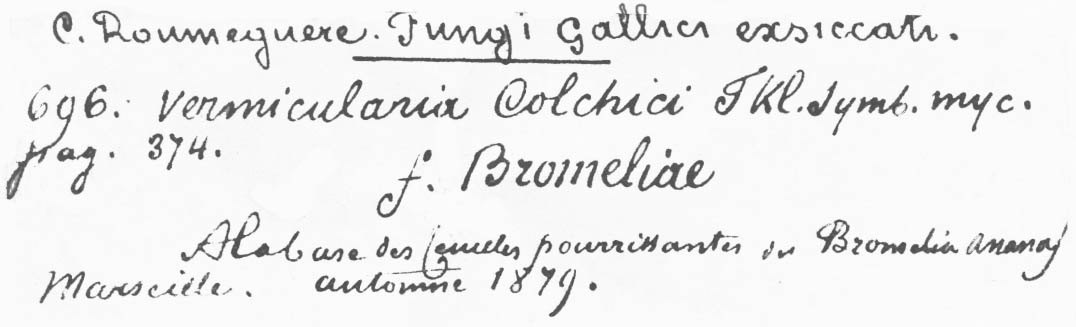 C. Roumeguere. Fungi Gallici exsiccati.
696. Vermicularia Colchici Fkl. Symb. myc.
pag. 374.
f. Bromeliae
A la base des feuilles pourrissantes du Bromelia ananas
Marseille. automne 1879.